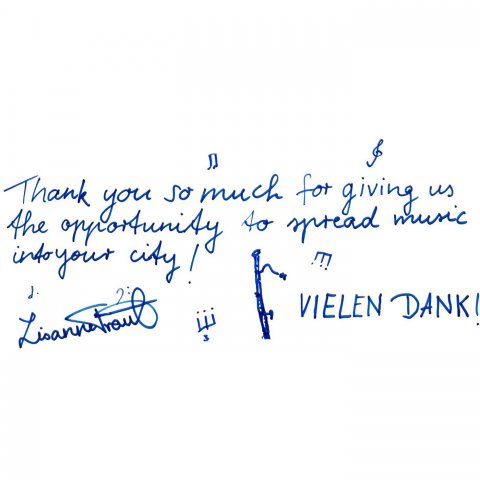 Thank you so much for giving us
the opportunity to spread music
into your city!
VIELEN DANK!
Lisanne Traul